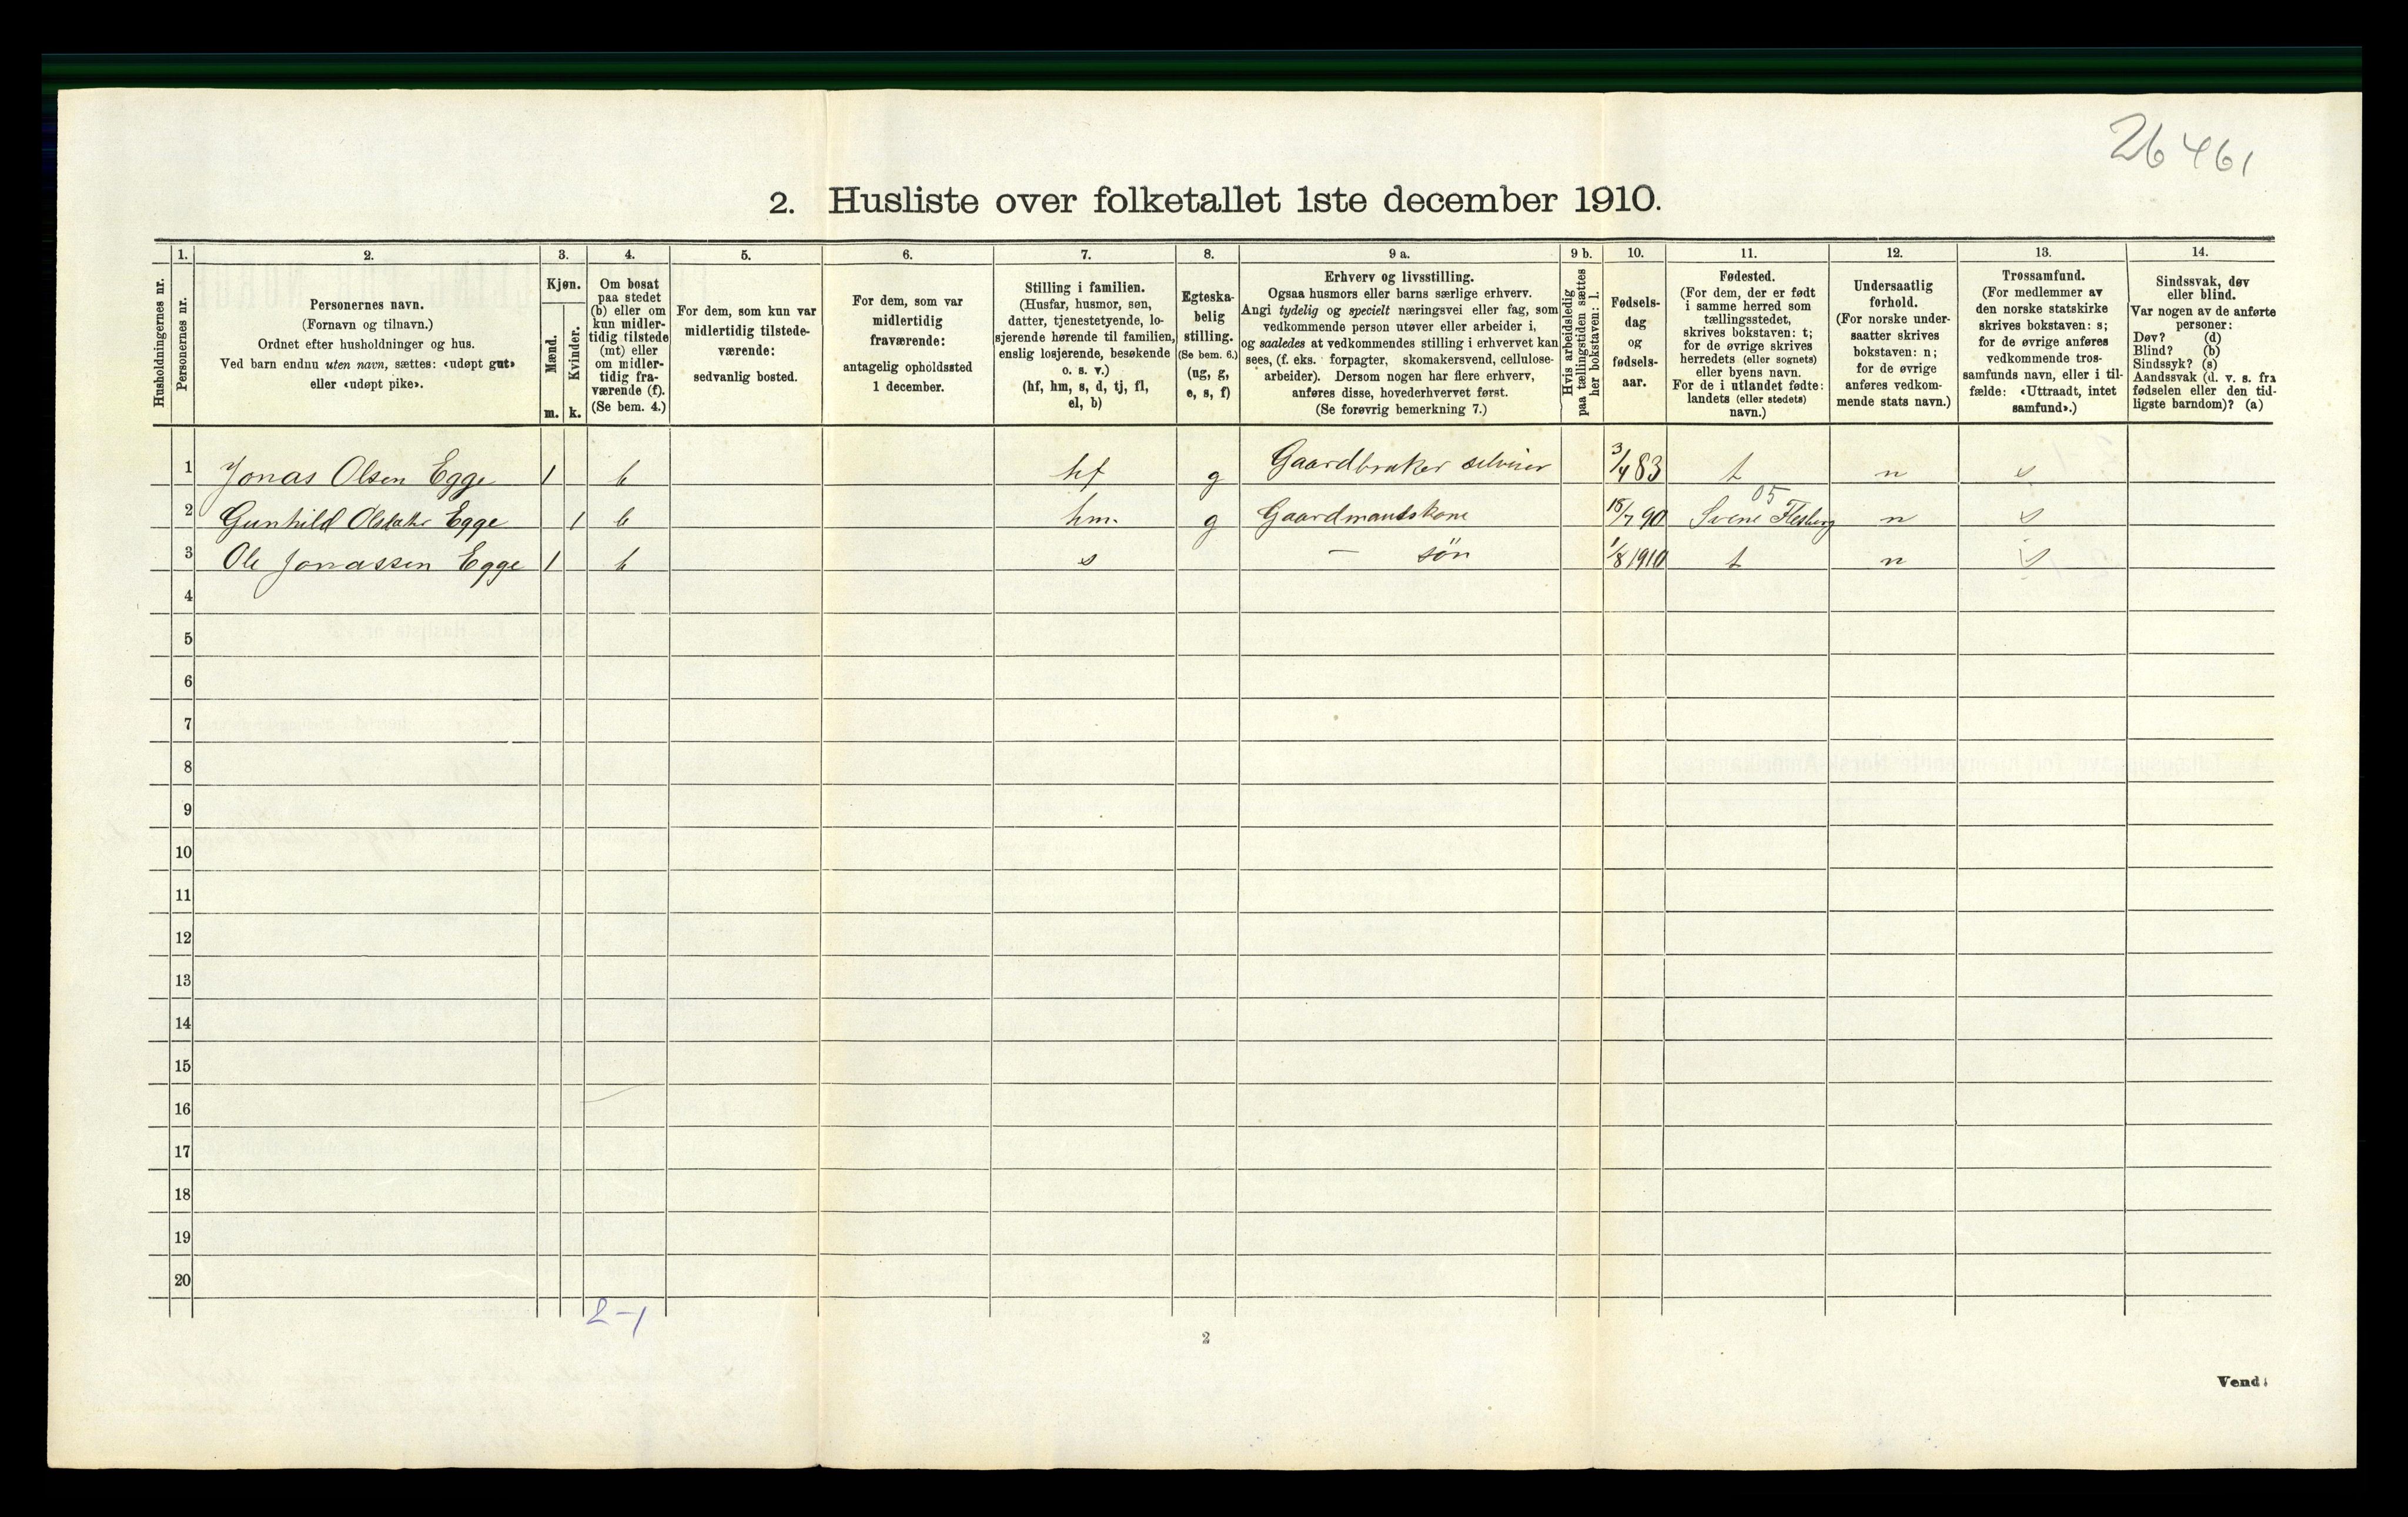 26 461
2. Husliste over folketallet 1ste december 1910.
Husholdningernes nr.
1.
Personernes nr.
2.
Personernes navn.
(Fornavn og tilnavn.)
Ordnet efter husholdninger og hus.
Ved barn endnu uten navn, sættes: «udøpt gut»
eller «udøpt pike».
3.
Kjøn.
Mænd.
Kvinder.
m. k.
4.
Om bosat
paa stedet
(b) eller om
kun midler-
tidig tilstede
(mt) eller
om midler-
tidig fra-
værende (f).
(Se bem. 4.)
5.
For dem, som kun var
midlertidig tilstede-
værende:
sedvanlig bosted.
6.
For dem, som var
midlertidig
fraværende:
antagelig opholdssted
1 december.
7.
Stilling i familien.
(Husfar, husmor, søn,
datter, tjenestetyende, lo-
sjerende hørende til familien,
enslig losjerende, besøkende
o. s. v.)
(hf, hm, s, d, tj, fl,
el, b)
8.
Egteska-
belig
stilling.
(Se bem. 6.)
(ug, g,
e, s, f)
9 a.
Erhverv og livsstilling.
Ogsaa husmors eller barns særlige erhverv.
Angi tydelig og specielt næringsvei eller fag, som
vedkommende person utøver eller arbeider i,
og saaledes at vedkommendes stilling i erhvervet kan
sees, (f. eks. forpagter, skomakersvend, cellulose-
arbeider). Dersom nogen har flere erhverv,
anføres disse, hovederhvervet først.
(Se forøvrig bemerkning 7.)
9 b.
Hvis arbeidsledig
paa tællingstiden sættes
her bokstaven: l.
10.
Fødsels-
dag
og
fødsels-
aar.
11.
Fødested.
(For dem, der er født
i samme herred som
tællingsstedet,
skrives bokstaven: t;
for de øvrige skrives
herredets (eller sognets)
eller byens navn.
For de i utlandet fødte:
landets (eller stedets)
navn.)
12.
Undersaatlig
forhold.
(For norske under-
saatter skrives
bokstaven: n;
for de øvrige
anføres vedkom-
mende stats navn.)
13.
Trossamfund.
(For medlemmer av
den norske statskirke
skrives bokstaven: s;
for de øvrige anføres
vedkommende tros-
samfunds navn, eller i til-
fælde: «Uttraadt, intet
samfund».)
14.
Sindssvak, døv
eller blind.
Var nogen av de anførte
personer:
Døv? (d)
Blind? (b)
Sindssyk? (s)
Aandssvak (d. v. s. fra
fødselen eller den tid-
ligste barndom)? (a)
1 Jonas Olsen Egge 1 b hf g Gaardbruker selveier 3/4 83 t n s
05
2 Gunhild Olsdatter Egge 1 b hm. g Gaardmandskone 18/7 90 Svene Flesberg n s
3 Ole Jonassen Egge 1 b s — søn 1/8 1910 t n s
4
5
6
7
8
9
10
11
12
13
14
15
16
17
18
19
20
2-1
2
Vend!